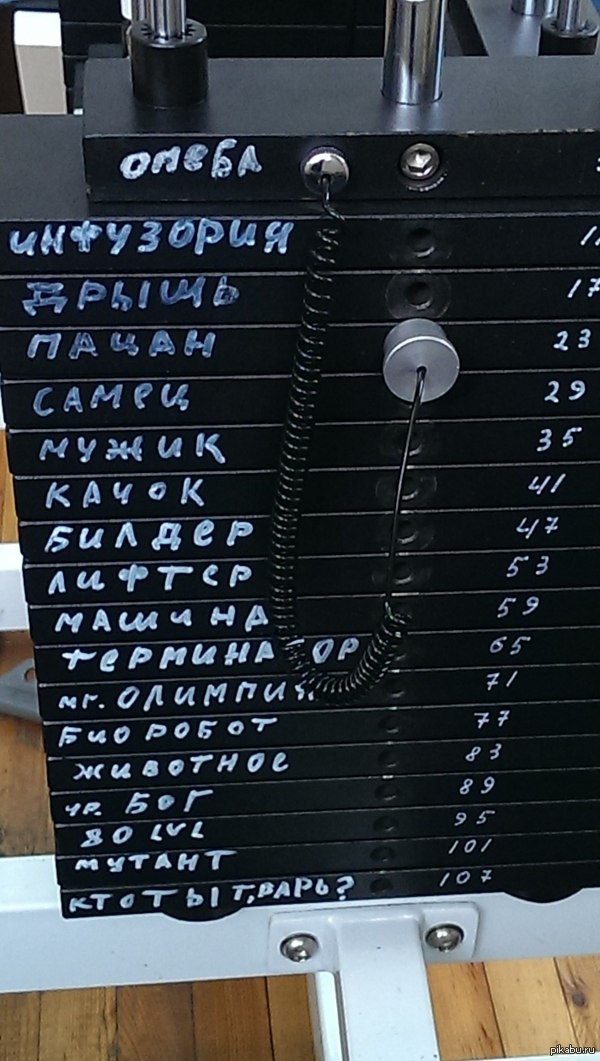 омеба
инфузория
дрыщь 17
пацан 23
самец 29
мужик 35
качок 41
билдер 47
лифтер 53
машина 59
терминатор 65
мг. олимпия 71
биоробот 77
животное 83
ур. бог 89
80 lvl 95
мутант 101
кто ты т,варь? 107
pikabu.ru